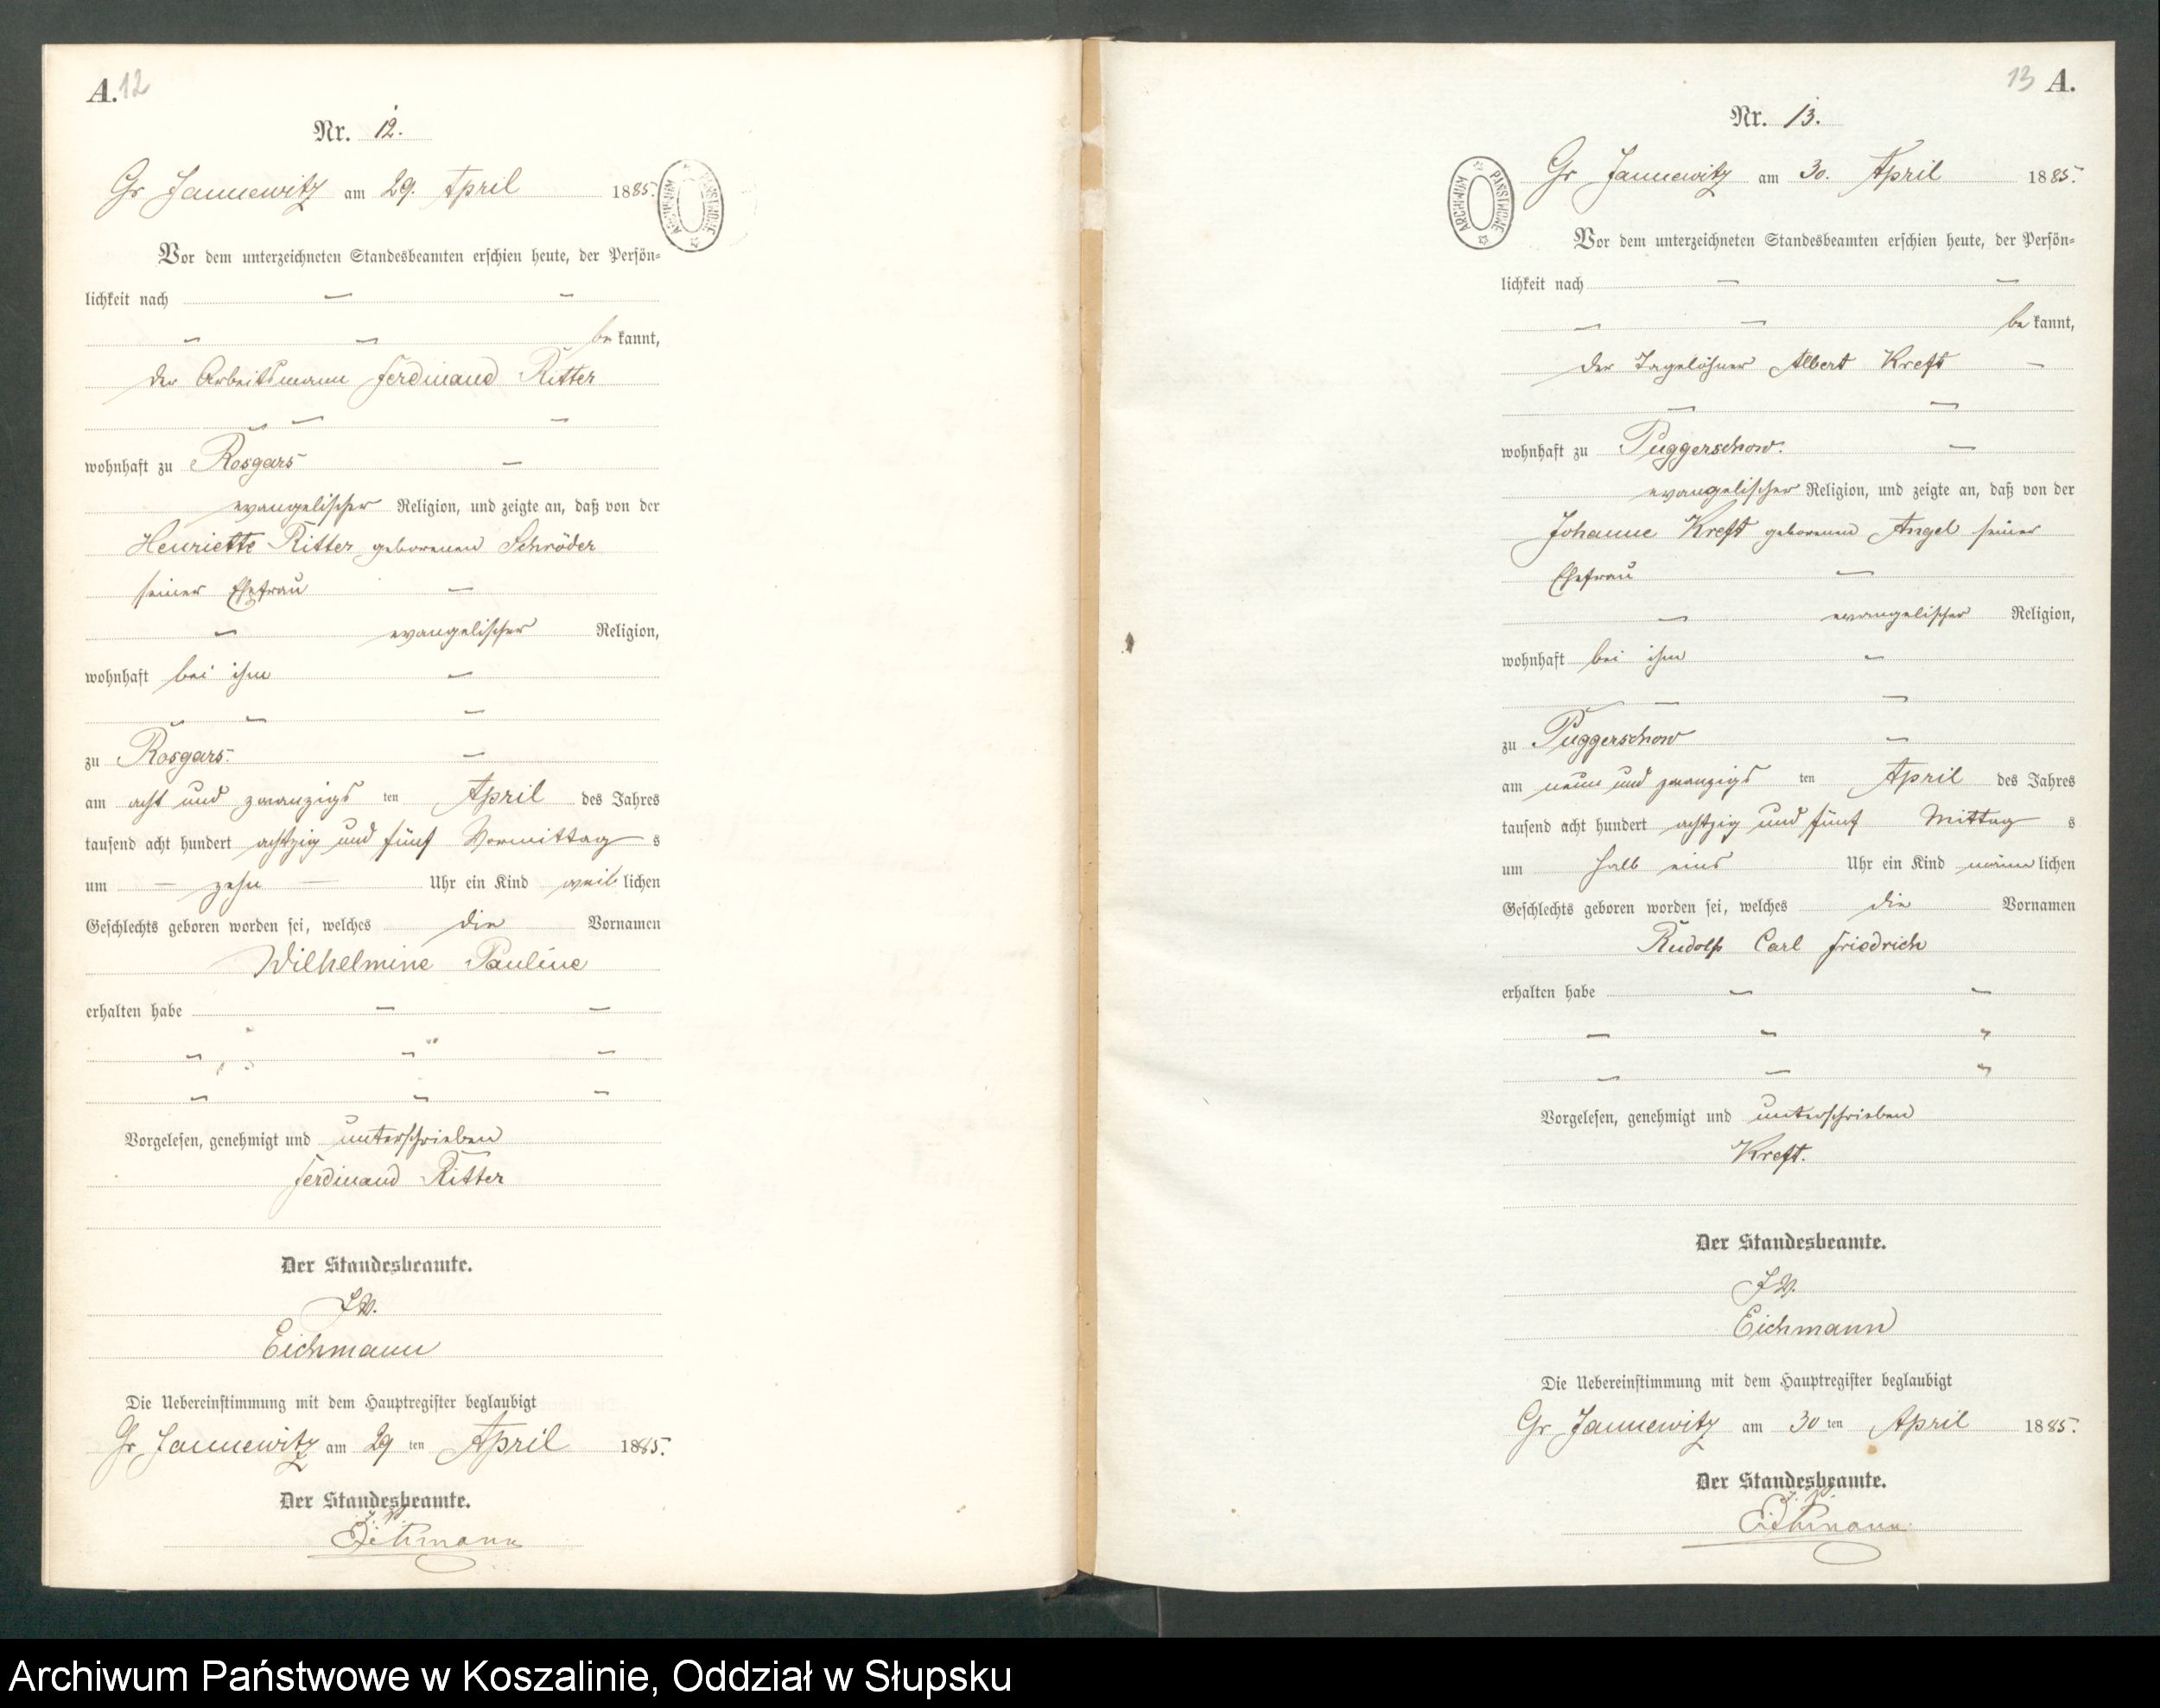 A. 12
Nr. 12.
Gr Jannewitz am 29. April 1885.
ARCHIWUM PAŃSTWOWE
Vor dem unterzeichneten Standesbeamten erschien heute, der Persön-
lichkeit nach — —
— — bekannt,
der Arbeitsmann Ferdinand Ritter
— — —
wohnhaft zu Rosgars —
evangelischer Religion, und zeigte an, daß von der
Henriette Ritter geborenen Schröder
seiner Ehefrau —
— evangelischer Religion,
wohnhaft bei ihm —
— — —
zu Rosgars. —
am acht und zwanzigs ten April des Jahres
tausend acht hundert achtzig und fünf Vormittag s
um — zehn — Uhr ein Kind weiblichen
Geschlechts geboren worden sei, welches die Vornamen
Wilhelmine Pauline
erhalten habe — —
— — —
— — —
Vorgelesen, genehmigt und unterschrieben
Ferdinand Ritter
Der Standesbeamte.
J.V.
Eichmann
Die Uebereinstimmung mit dem Hauptregister beglaubigt
Gr Jannewitz am 29 ten April 1885.
Der Standesbeamte.
J. V.
Eichmann
13 A.
Nr. 13.
Gr Jannewitz am 30. April 1885.
ARCHIWUM PAŃSTWOWE
Vor dem unterzeichneten Standesbeamten erschien heute, der Persön-
lichkeit nach — —
— — bekannt,
der Tagelöhner Albert Kreft —
— —
wohnhaft zu Puggerschow. —
evangelischer Religion, und zeigte an, daß von der
Johanne Kreft geborenen Angel seiner
Ehefrau —
— evangelischer Religion,
wohnhaft bei ihm —
— —
zu Puggerschow —
am neun und zwanzigs ten April des Jahres
tausend acht hundert achtzig und fünf Mittag s
um halb eins Uhr ein Kind männlichen
Geschlechts geboren worden sei, welches die Vornamen
Rudolf Carl Friedrich
erhalten habe — —
— — —
— — —
Vorgelesen, genehmigt und unterschrieben
Kreft.
Der Standesbeamte.
J.V.
Eichmann
Die Uebereinstimmung mit dem Hauptregister beglaubigt
Gr Jannewitz am 30 ten April 1885.
Der Standesbeamte.
J. V.
Eichmann
Archiwum Państwowe w Koszalinie, Oddział w Słupsku